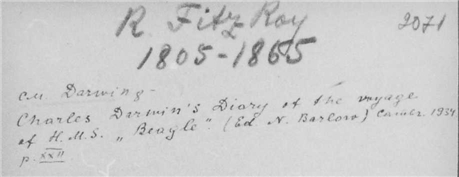 R. Fitz Roy 2071
1805-1865
см Darwing-
Charles Darwin's Diary of the voyage
of H.M.S. „Beagle". (Ed. N. Barlow) Cambr. 1934
p. XXII